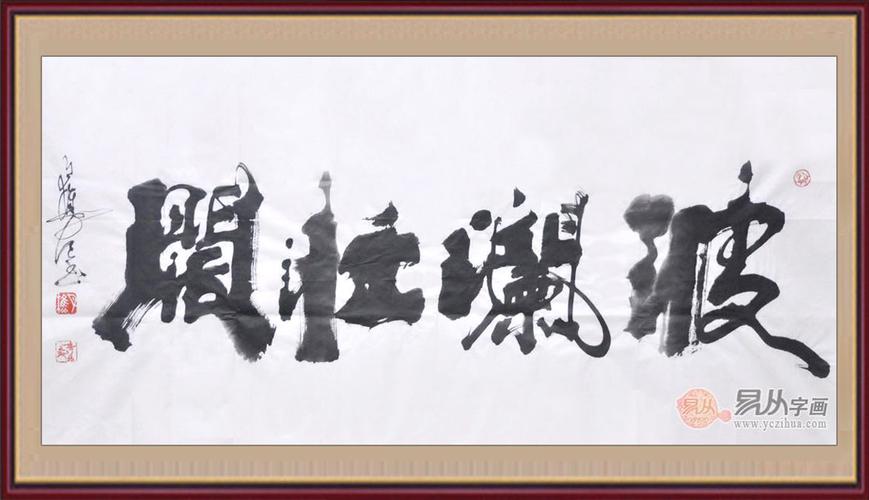 波瀾壮闊
易从
易从字画
www.yczihua.com